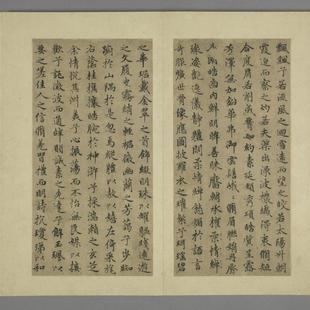 飄飄兮若流風之迴雪遠而望之皎若太陽升朝
霞迫而察之灼若夫渠出淥波穠纖得衷脩短
合度肩若削成腰如約素延頸秀項皓質呈露
芳澤無加鉛華弗御雲髻峩峩脩眉聯娟丹脣
外朗皓齒內鮮明眸善睞靨輔承權瓌
姿艷逸儀靜體閑柔情綽態媚於語言
奇服曠世骨像應圖披羅衣之璀粲兮珥瑤碧
之華琚戴金翠之首飾綴明珠以耀軀踐遠遊
之文履曳霧綃之輕裾微幽蘭之芳藹兮步踟
躕於山隅於是忽焉縱體以遨以嬉左倚采旄
右蔭桂旗攘皓腕於神滸兮采湍瀨之玄芝
余情悅其淑美兮心振蕩而不怡無良媒以接
歡兮託微波而通辭願誠素之先達兮解玉珮以
要之嗟佳人之信脩羌習禮而明詩抗瓊珶以和